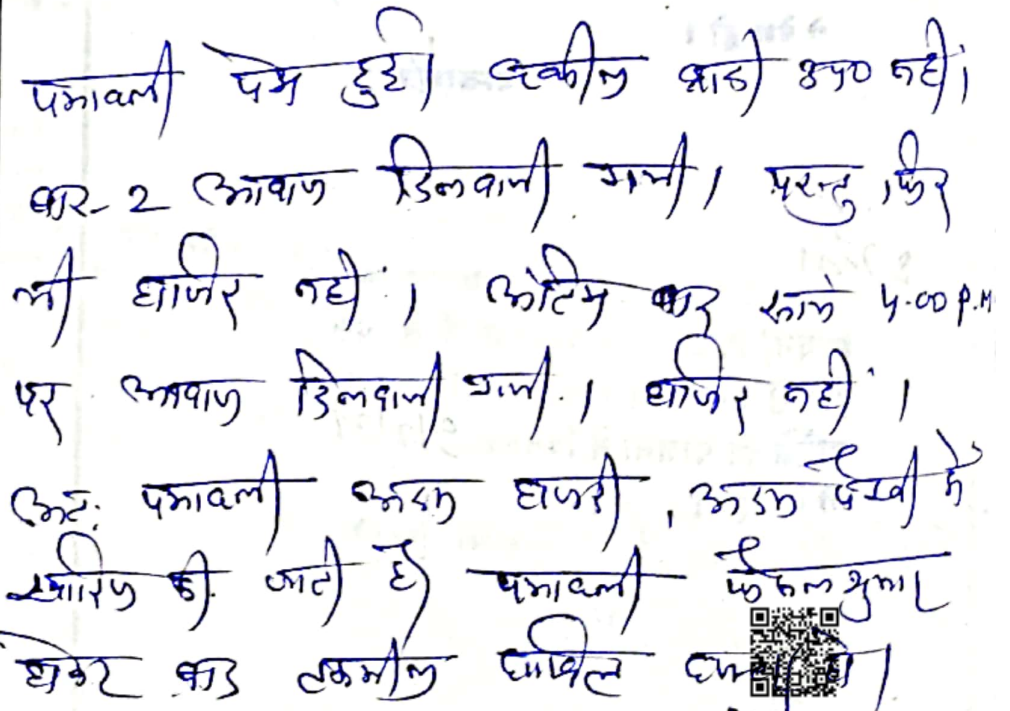 पत्रावली पेश हुई। वकील प्रार्थी उप० नहीं।
बार-2 आवाज दिलवायी गयी। परन्तु फिर
भी हाजिर नहीं। अंतिम बार सायं 4.00 P.M
पर आवाज दिलवायी गयी। हाजिर नहीं।
अतः पत्रावली अदम हाजरी, अदम पैरवी में
खारिज की जाती है। पत्रावली फैसल शुमार
होकर बाद तकमील दाखिल दफ्तर हो।